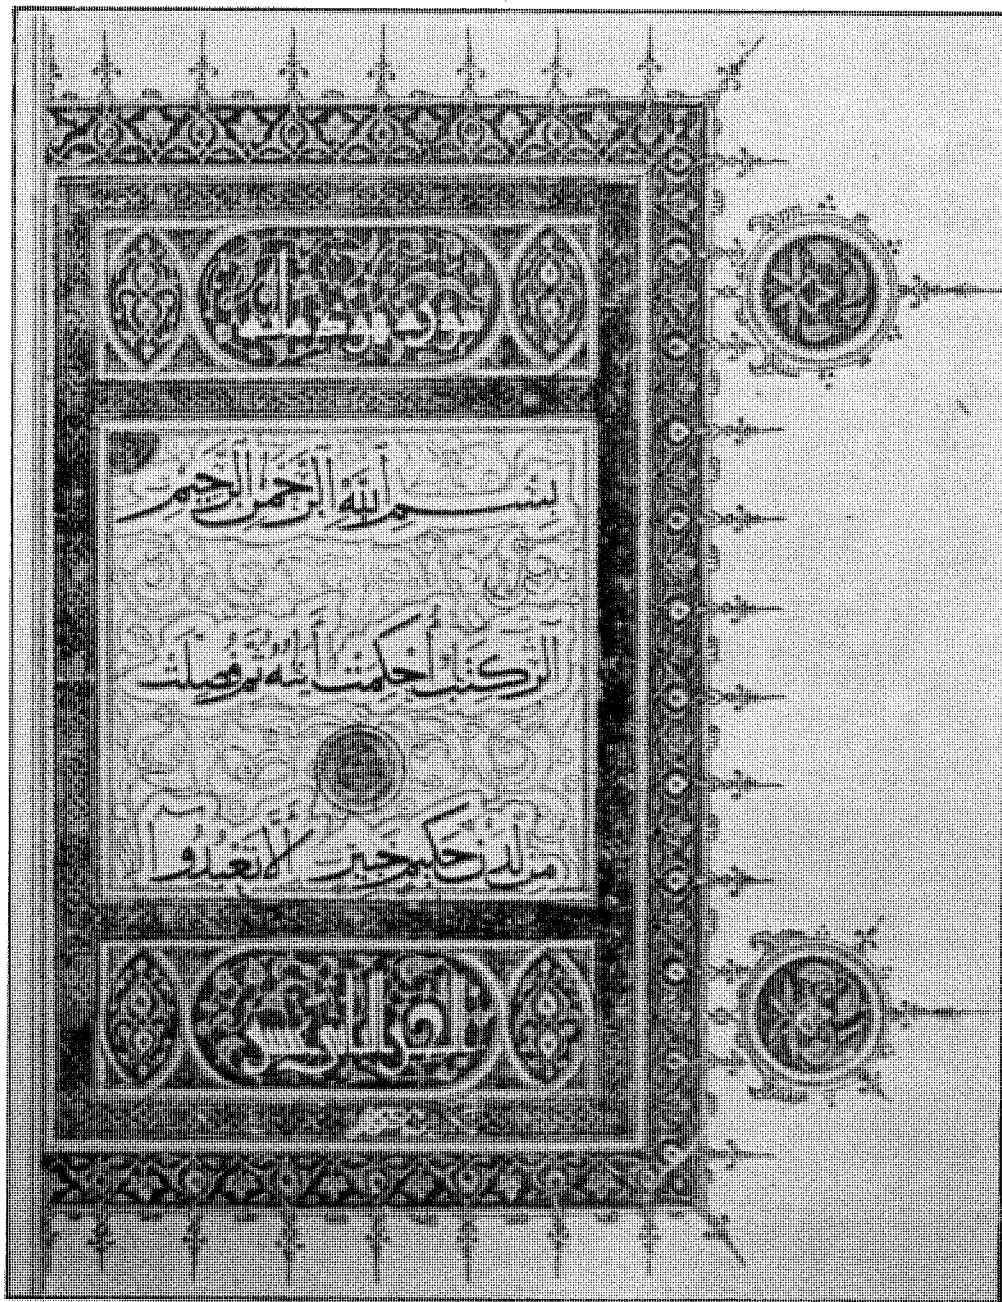 سورة هود
بِسْمِ اللَّهِ الرَّحْمَنِ الرَّحِيمِ
الر كِتَبٌ أُحْكِمَتْ أَيَتُهُ ثُمَّ فُصِّلَتْ
مِن لَّدُنْ حَكِيمٍ خَبِيرٍ أَلَّا تَعْبُدُوا